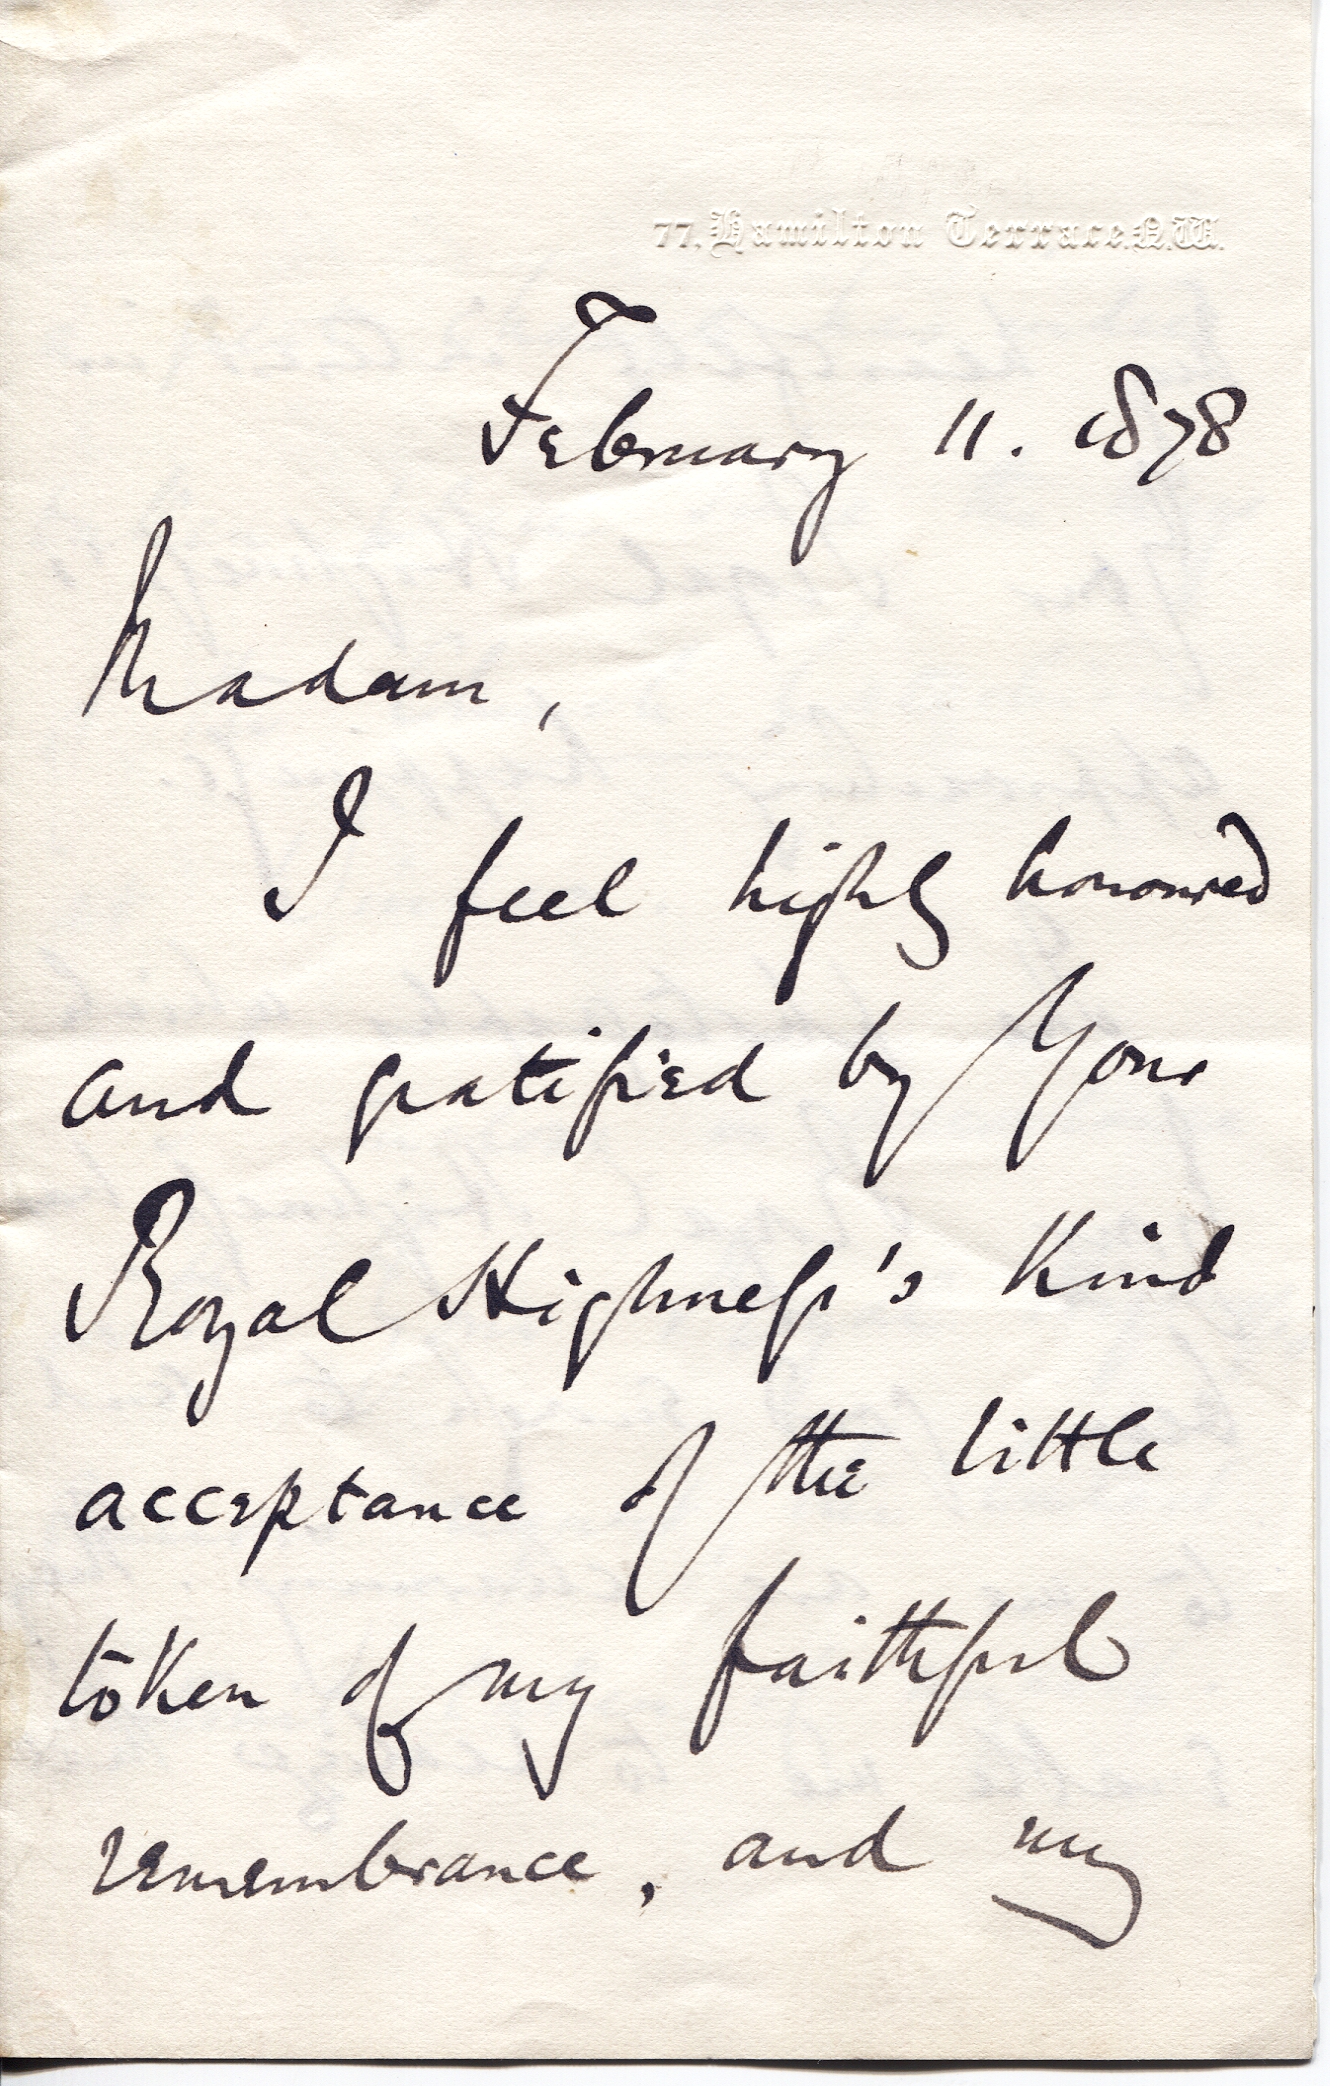 77, Hamilton Terrace. N.W.
February 11. 1878
Madam,
I feel highly honoured
and gratified by Your
Royal Highness's kind
acceptance of the little
token of my faithful
remembrance, and my